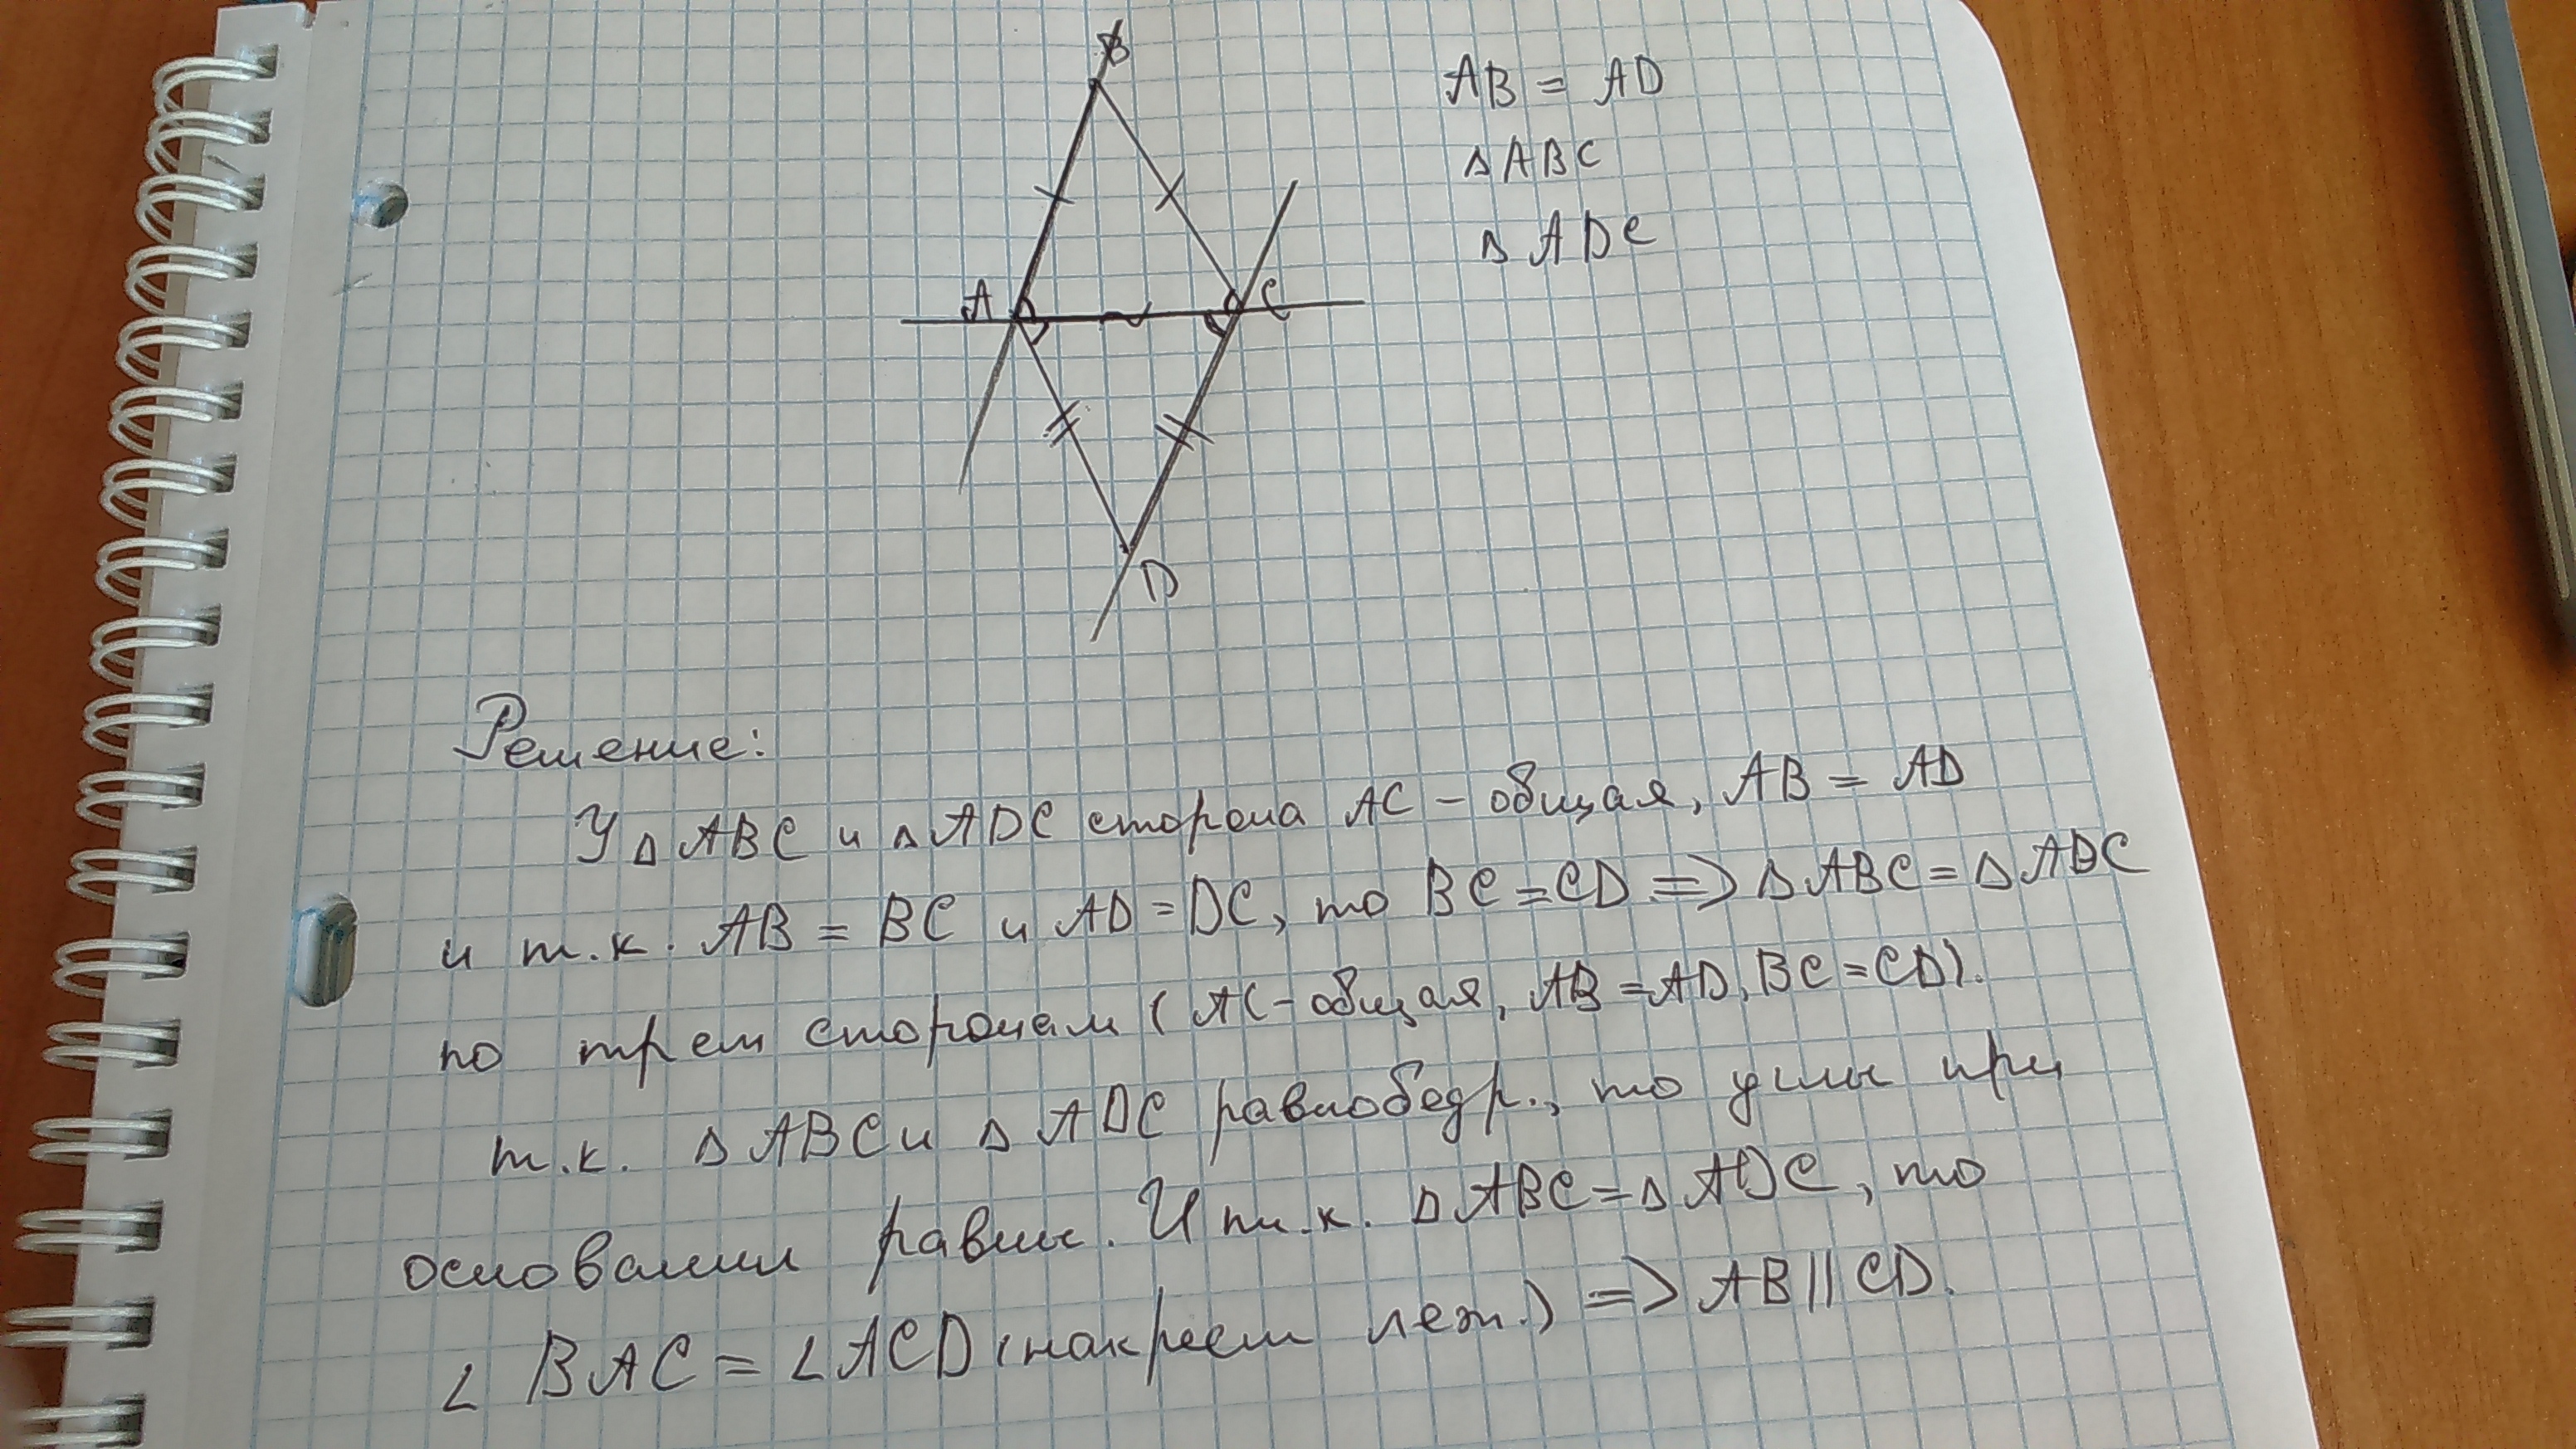 B
A
C
D
AB = AD
△ABC
△ADC
Решение:
У △ABC и △ADC сторона AC – общая, AB = AD
и т.к. AB = BC и AD = DC, то BC = CD => △ABC = △ADC
по трем сторонам (AC – общая, AB = AD, BC = CD).
т.к. △ABC и △ADC равнобедр., то углы при
основании равны. И т.к. △ABC = △ADC, то
∠BAC = ∠ACD (накрест леж.) => AB || CD.